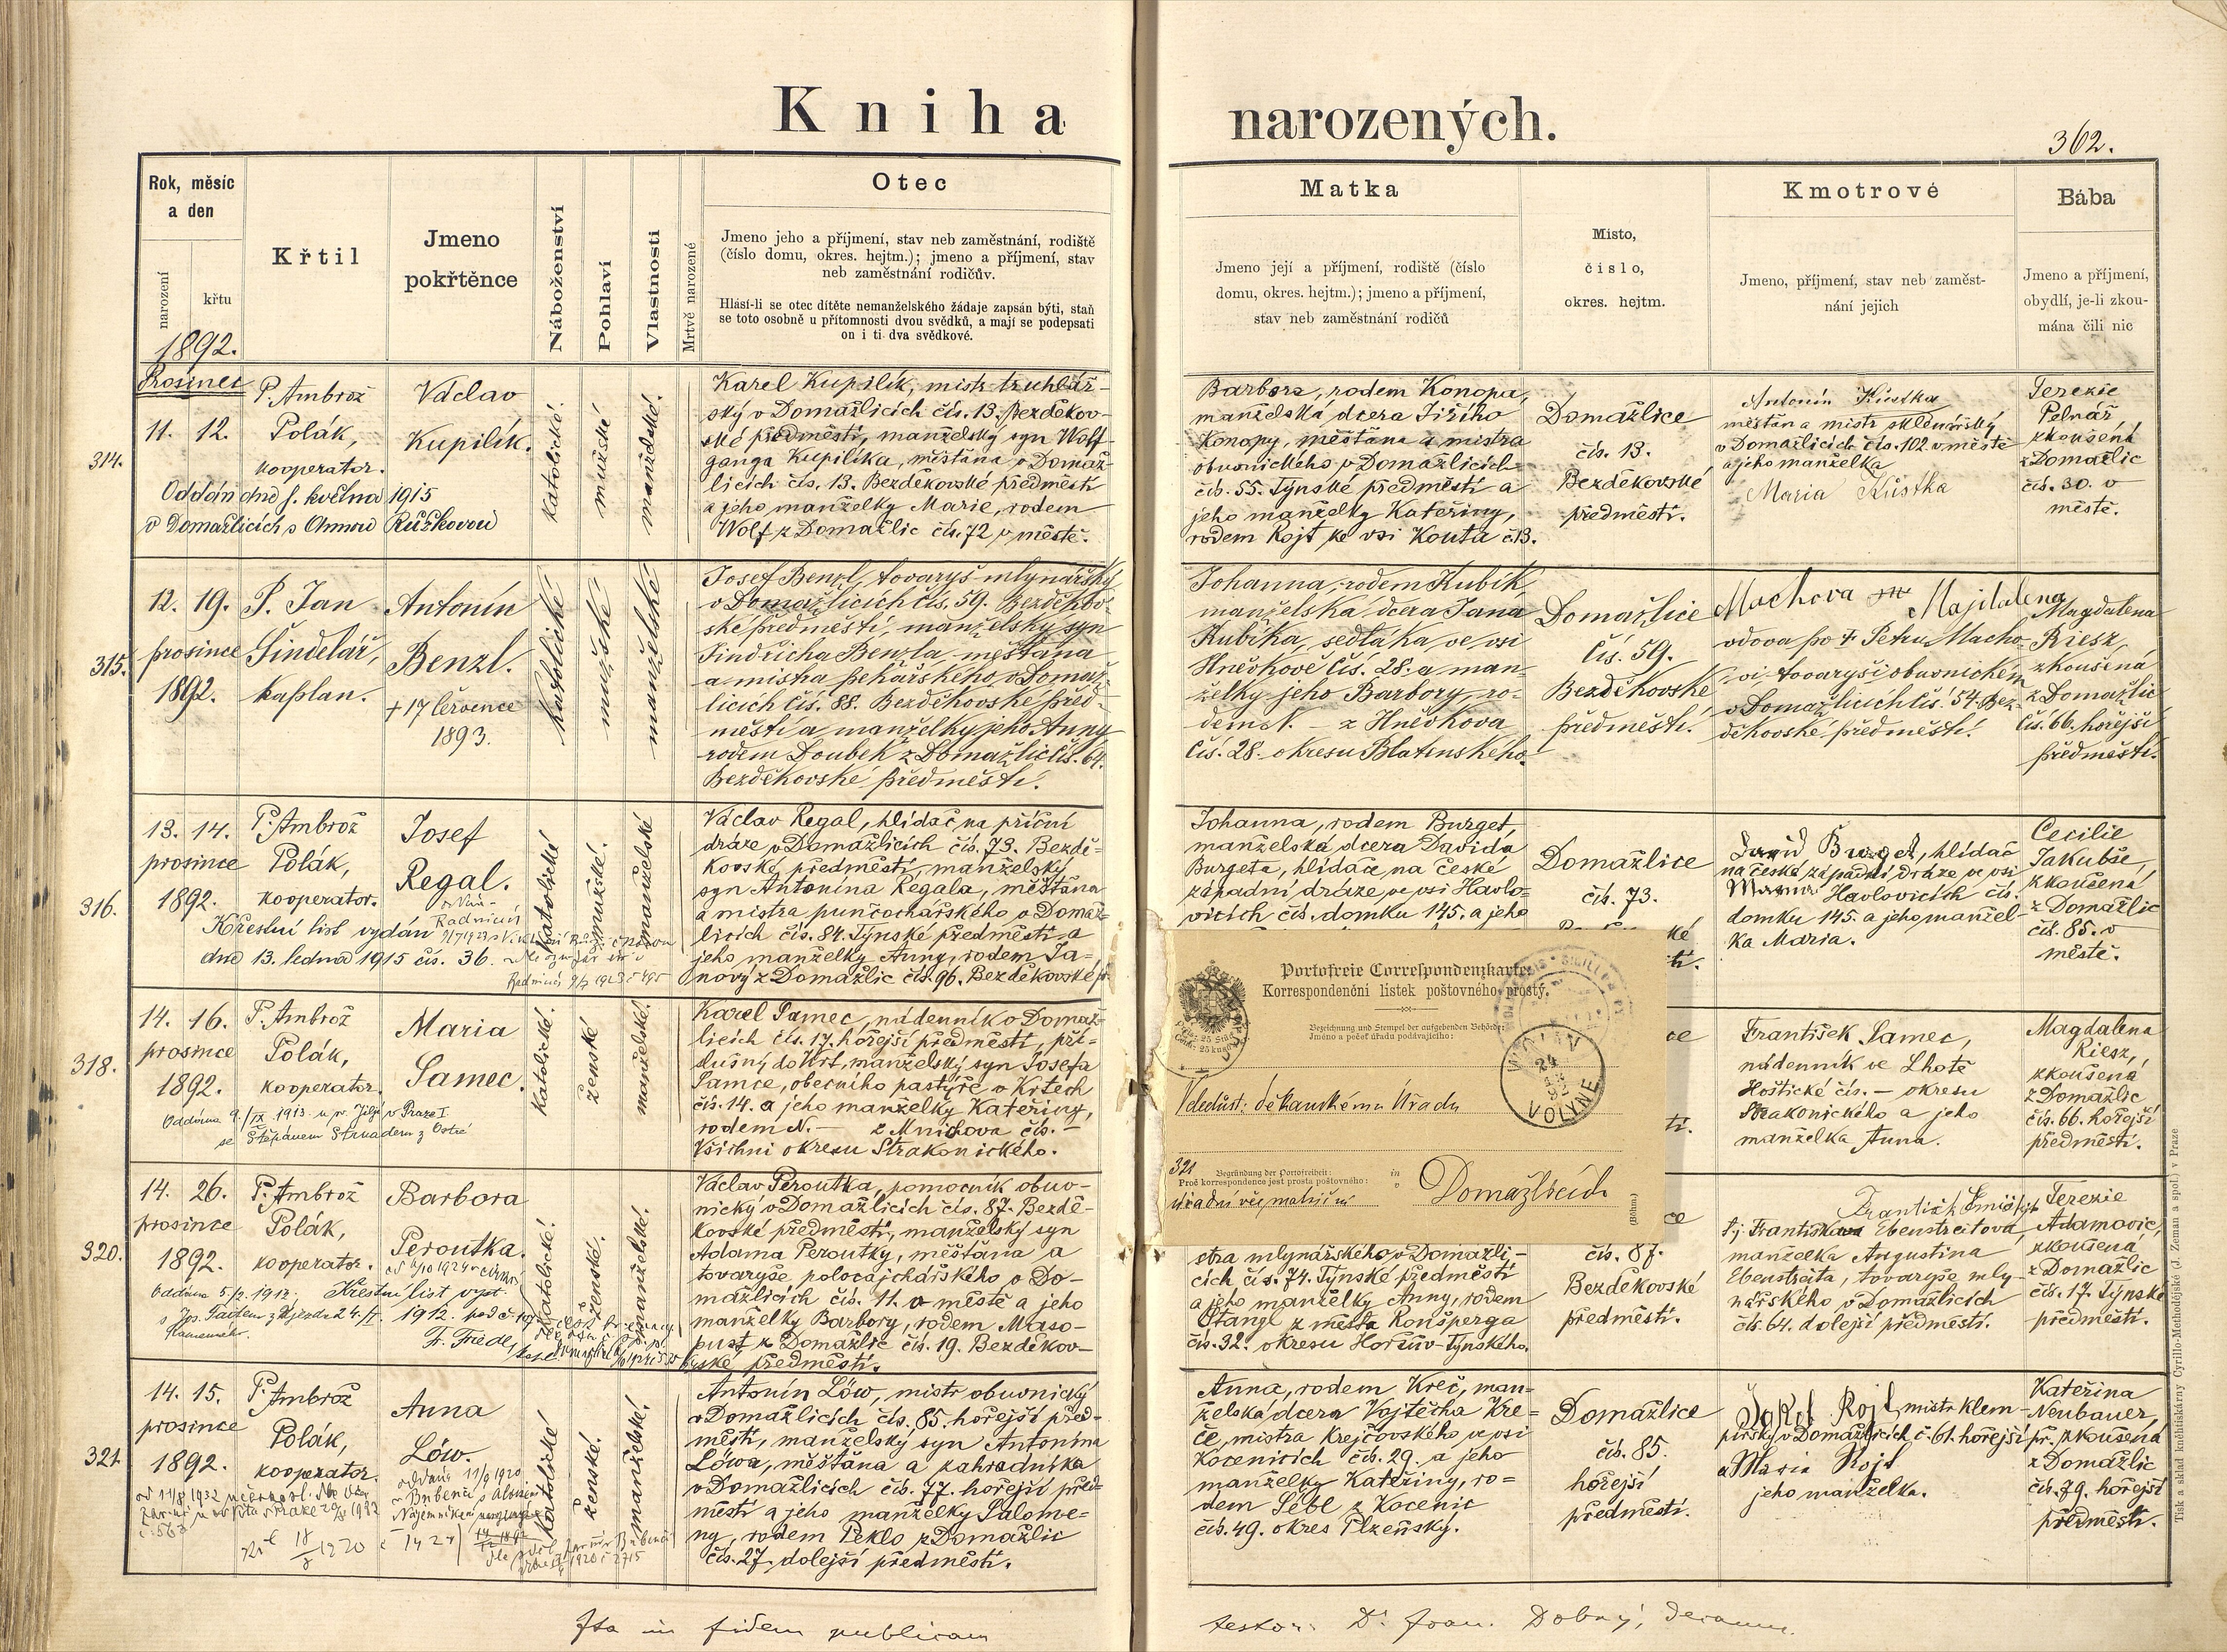 Kniha narozených.
362.
Rok, měsíc a den
narození
křtu
Křtil
Jmeno pokřtěnce
Náboženství
Pohlaví
Vlastnosti
Mrtvě narozené
Otec
Jmeno jeho a příjmení, stav neb zaměstnání, rodiště
(číslo domu, okres. hejtm.); jmeno a příjmení, stav
neb zaměstnání rodičův.
Hlásí-li se otec dítěte nemanželského žádaje zapsán býti, staň
se toto osobně u přítomnosti dvou svědků, a mají se podepsati
on i ti dva svědkové.
Matka
Jmeno její a příjmení, rodiště (číslo
domu, okres. hejtm.); jmeno a příjmení,
stav neb zaměstnání rodičů
Misto,
číslo,
okres. hejtm.
Kmotrové
Jmeno, příjmení, stav neb zaměst-
nání jejich
Bába
Jmeno a příjmení,
obydlí, je-li zkou-
mána čili nic
1892.
Prosinec
314.
11. 12.
P. Ambrož
Polák,
kooperator.
Václav
Kupilík.
katolické.
mužské
manželské.
Oddán dne 1. května 1915
v Domažlicích s Annou Růžkovou
Karel Kupilík, mistr truhlář-
ský v Domažlicích čís. 13. Bezděkov-
ské předměstí, manželský syn Wolf-
ganga Kupilíka, měšťana v Domaž-
licích čís. 13. Bezděkovské předměstí
a jeho manželky Marie, rodem
Wolf z Domažlic čís. 72 v městě.
Barbora, rodem Konopa,
manželská dcera Jiřího
Konopy, měšťana a mistra
obuvnického v Domažlicích
čís. 55. Týnské předměstí a
jeho manželky Kateřiny,
rodem Rojt ze vsi Kouta č. 13.
Domažlice
čís. 13.
Bezděkovské
předměstí.
Antonín Kůstka
měšťan a mistr sklenářský
v Domažlicích čís. 102 v městě
a jeho manželka
Maria Kůstka
Terezie
Pelnář
zkoušená
z Domažlic
čís. 30. v
městě.
315.
12. 19.
prosince
1892.
P. Jan
Šindelář,
kaplan.
Antonín
Benzl.
+ 17 července
1893.
katolické
mužské
manželské
Josef Benzl, tovaryš mlynářský
v Domažlicích čís. 59. Bezděkov-
ské předměstí, manželský syn
Jindřicha Benzla, měšťana
a mistra pekařského v Domaž-
licích čís. 88. Bezděkovské před-
městí a manželky jeho Anny
rodem Doubek z Domažlic čís. 64.
Bezděkovské předměstí.
Johanna, rodem Kubík,
manželská dcera Jana
Kubíka, sedláka ve vsi
Hněvkově čís. 28. a man-
želky jeho Barbory ro-
dem N. – z Hněvkova
čís. 28. okresu Blatenského.
Domažlice
čís. 59.
Bezděkovské
předměstí.
Machova Majdalena
vdova po + Petru Macho-
vi, tovaryši obuvnickém
v Domažlicích čís. 54. Bez-
děkovské předměstí.
Magdalena
Riesz,
zkoušená
z Domažlic
čís. 66. hořejší
předměstí.
316.
13. 14.
prosince
1892.
P. Ambrož
Polák,
kooperator.
Josef
Regal.
katolické
mužské.
manželské
Křestní list vydán
dne 13. ledna 1915 čís. 36.
Václav Regal, hlídač na příční
dráze v Domažlicích čís. 73. Bezdě-
kovské předměstí, manželský
syn Antonína Regala, měšťana
a mistra punčochářského v Domaž-
licích čís. 84. Týnské předměstí a
jeho manželky Anny, rodem Ja-
nový z Domažlic čís. 96. Bezděkovské
Johanna, rodem Burget,
manželská dcera Davida
Burgeta, hlídače na české
západní dráze, ve vsi Havlo-
vicích čís. domku 145. a jeho
Domažlice
čís. 73.
David Burget, hlídač
na české západní dráze ve vsi
Havlovicích čís.
domku 145. a jeho manžel-
ka Maria.
Cecilie
Jakubše,
zkoušená
z Domažlic
čís. 85. v
městě.
318.
14. 16.
prosince
1892.
P. Ambrož
Polák,
kooperator.
Maria
Samec.
katolické.
ženské
manželské.
Oddána 9./IX. 1913. u sv. Jiljí v Praze I
se Štěpánem Strnadem z
Karel Samec, nádenník v Domaž-
licích čís. 17. hořejší předměstí, pří-
slušný do Krt, manželský syn Josefa
Samce, obecního pastýře v Krtech
čís. 14. a jeho manželky Kateřiny,
rodem N. – z Mnichova čís. –
Všichni okresu Strakonického.
František Samec,
nádenník ve Lhotě
Hoštické čís. – okresu
Strakonického a jeho
manželka Anna.
Magdalena
Riesz,
zkoušená
z Domažlic
čís. 66. hořejší
předměstí.
Portofreie Correspondenzkarte.
Korrespondenční lístek poštovného prostý.
Bezeichnung und Stempel der aufgebenden Behörde:
Jméno a pečeť úřadu podávajícího:
WOLIN
24
VOLYNĚ
Veledůst. děkanskému Úřadu
321
Begründung der Portofreiheit:
Proč korrespondence jest prosta poštovného:
úřadní věc matriční
in
v
Domažlicích
(Böhm.)
320.
14. 26.
prosince
1892.
P. Ambrož
Polák,
kooperator.
Barbora
Peroutka.
katolické.
ženské.
manželské.
Křestní list vyst.
1912.
Václav Peroutka, pomocník obuv-
nický v Domažlicích čís. 87. Bezdě-
kovské předměstí, manželský syn
Adama Peroutky, měšťana a
tovaryše polocajchářského v Do-
mažlicích čís. 11. v městě a jeho
manželky Barbory, rodem Maso-
pust z Domažlic čís. 19. Bezděkov-
ské předměstí.
stra mlynářského v Domažli-
cích čís. 74. Týnské předměstí
a jeho manželky Anny, rodem
Stangl z města Ronšperga
čís. 32. okresu Horšův-Týnského.
čís. 87.
Bezděkovské
předměstí.
Ebenstreitova,
manželka Augustina
Ebenstreita, tovaryše mly-
nářského v Domažlicích
čís. 64. dolejší předměstí.
Terezie
Adamovic,
zkoušená
z Domažlic
čís. 17. Týnské
předměstí.
321.
14. 15.
prosince
1892.
P. Ambrož
Polák,
kooperator.
Anna
Löw.
katolické
ženské.
manželské.
Antonín Löw, mistr obuvnický
v Domažlicích čís. 85. hořejší před-
městí, manželský syn Antonína
Löwa, měšťana a zahradníka
v Domažlicích čís. 77. hořejší před-
městí a jeho manželky Salome-
ny, rodem Peklo z Domažlic
čís. 27. dolejší předměstí.
Anna, rodem Kreč, man-
želská dcera Vojtěcha Kre-
če, mistra krejčovského ve vsi
Kocenicích čís. 29. a jeho
manželky Kateřiny, ro-
dem Šébl z Kocenic
čís. 49. okres Plzeňský.
Domažlice
čís. 85.
hořejší
předměstí.
Jakub Rojt, mistr klem-
pířský v Domažlicích č. 61. hořejší př.
a Maria Rojt
jeho manželka.
Kateřina
Neubauer,
zkoušená
z Domažlic
čís. 79. hořejší
předměstí.
Ita in fidem publicam
testor: Dr. Fran. Dobný, decanus.
Tisk a sklad knihtiskárny Cyrillo-Methodějské (J. Zeman a spol.) v Praze